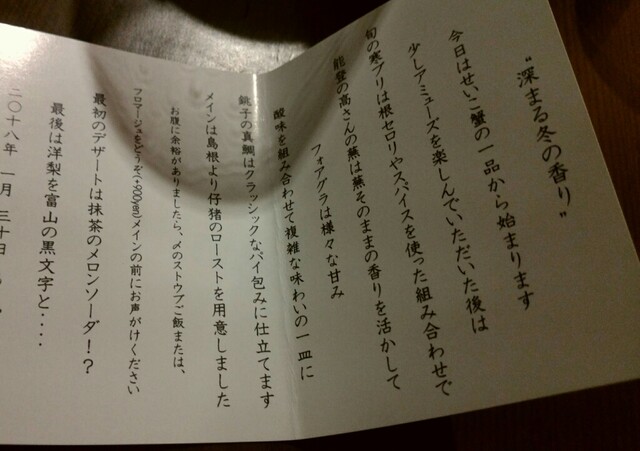 “深まる冬の香り”
今日はせいこ蟹の一品から始まります
少しアミューズを楽しんでいただいた後は
旬の寒ブリは根セロリやスパイスを使った組み合わせで
能登の高さんの蕪は蕪そのままの香りを活かして
フォアグラは様々な甘み
酸味を組み合わせて複雑な味わいの一皿に
銚子の真鯛はクラッシックなパイ包みに仕立てます
メインは島根より仔猪のローストを用意しました
お腹に余裕がありましたら、〆のストウブご飯または、
フロマージュをどうぞ(+900yen)メインの前にお声がけください
最初のデザートは抹茶のメロンソーダ！？
最後は洋梨を富山の黒文字と・・・
二〇十八年 一月 三十日